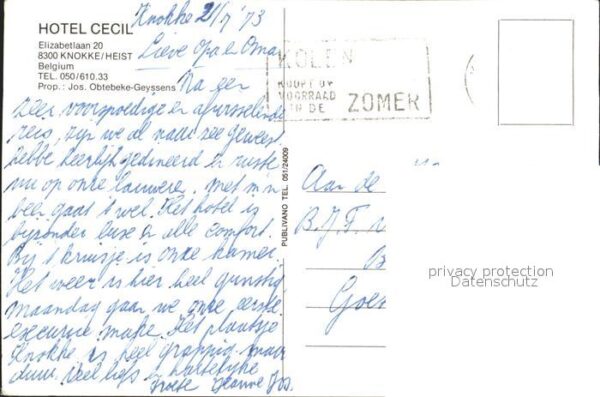 HOTEL CECIL
Elizabetlaan 20
8300 KNOKKE/HEIST
Belgium
TEL. 050/610.33
Prop.: Jos. Obtebeke-Geyssens
Knokke 21/7 '73
Lieve Opa en Oma
Na een
zeer voorspoedige en afwisselende
reis, zijn we al naar zee geweest
hebben heerlijk gedineerd en rusten
nu op onze lauweren. Met m'n
been gaat 't wel. Het hotel is
bijzonder luxe en alle comfort.
Bij 't kruisje is onze kamer.
Het weer is hier heel gunstig
maandag gaan we onze eerste
excursie maken. Het plaatsje
Knokke is heel grappig maar
duur. Veel liefs en hartelijke
KOLEN
KOOPT UW
VOORRAAD
IN DE
ZOMER
PUBLIVANO TEL. 051/24009
Aan de
B.J.F.
Goes
privacy protection
Datenschutz